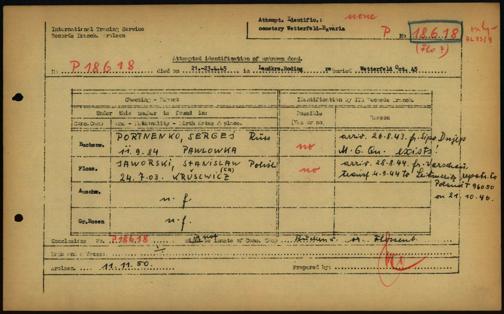 International Tracing Service
Records Branch Arolsen
Attempt. Identific.: none
cemetery Wetterfeld-Bavaria
P No 18.6.18
(Flo?)
Attempted identification of unknown dead.
No P 18.6.18 died on 21.-23.4.45 Landkrs. Roding re buried Wetterfeld Oct. 45
Checking - Report
Identification by ITS Records Branch.
Under this number is found in:
Possible
(Yes or no)
Reason
Conc.Camp Name - Nationality - Birth date & place.
Buchenw. PORTNENKO, SERGEJ Russ
11.9.84 PAWLOWKA
no
arriv. 20.8.43 fr.
exists!
Floss. JAWORSKI, STANISLAW Polish
24.7.03. KRUSCWICZ
no
arriv. 28.8.44 fr. Warschau
transf. 4.9.44 to Leitmeritz, repatr. to
Poland
on 21.10.46.
Auschw. n.f.
Gr.Rosen n.f.
Conclusions No. P.18.6.18 is not inmate of Conc. Camp
Arolsen 11.11.50.
Prepared by: